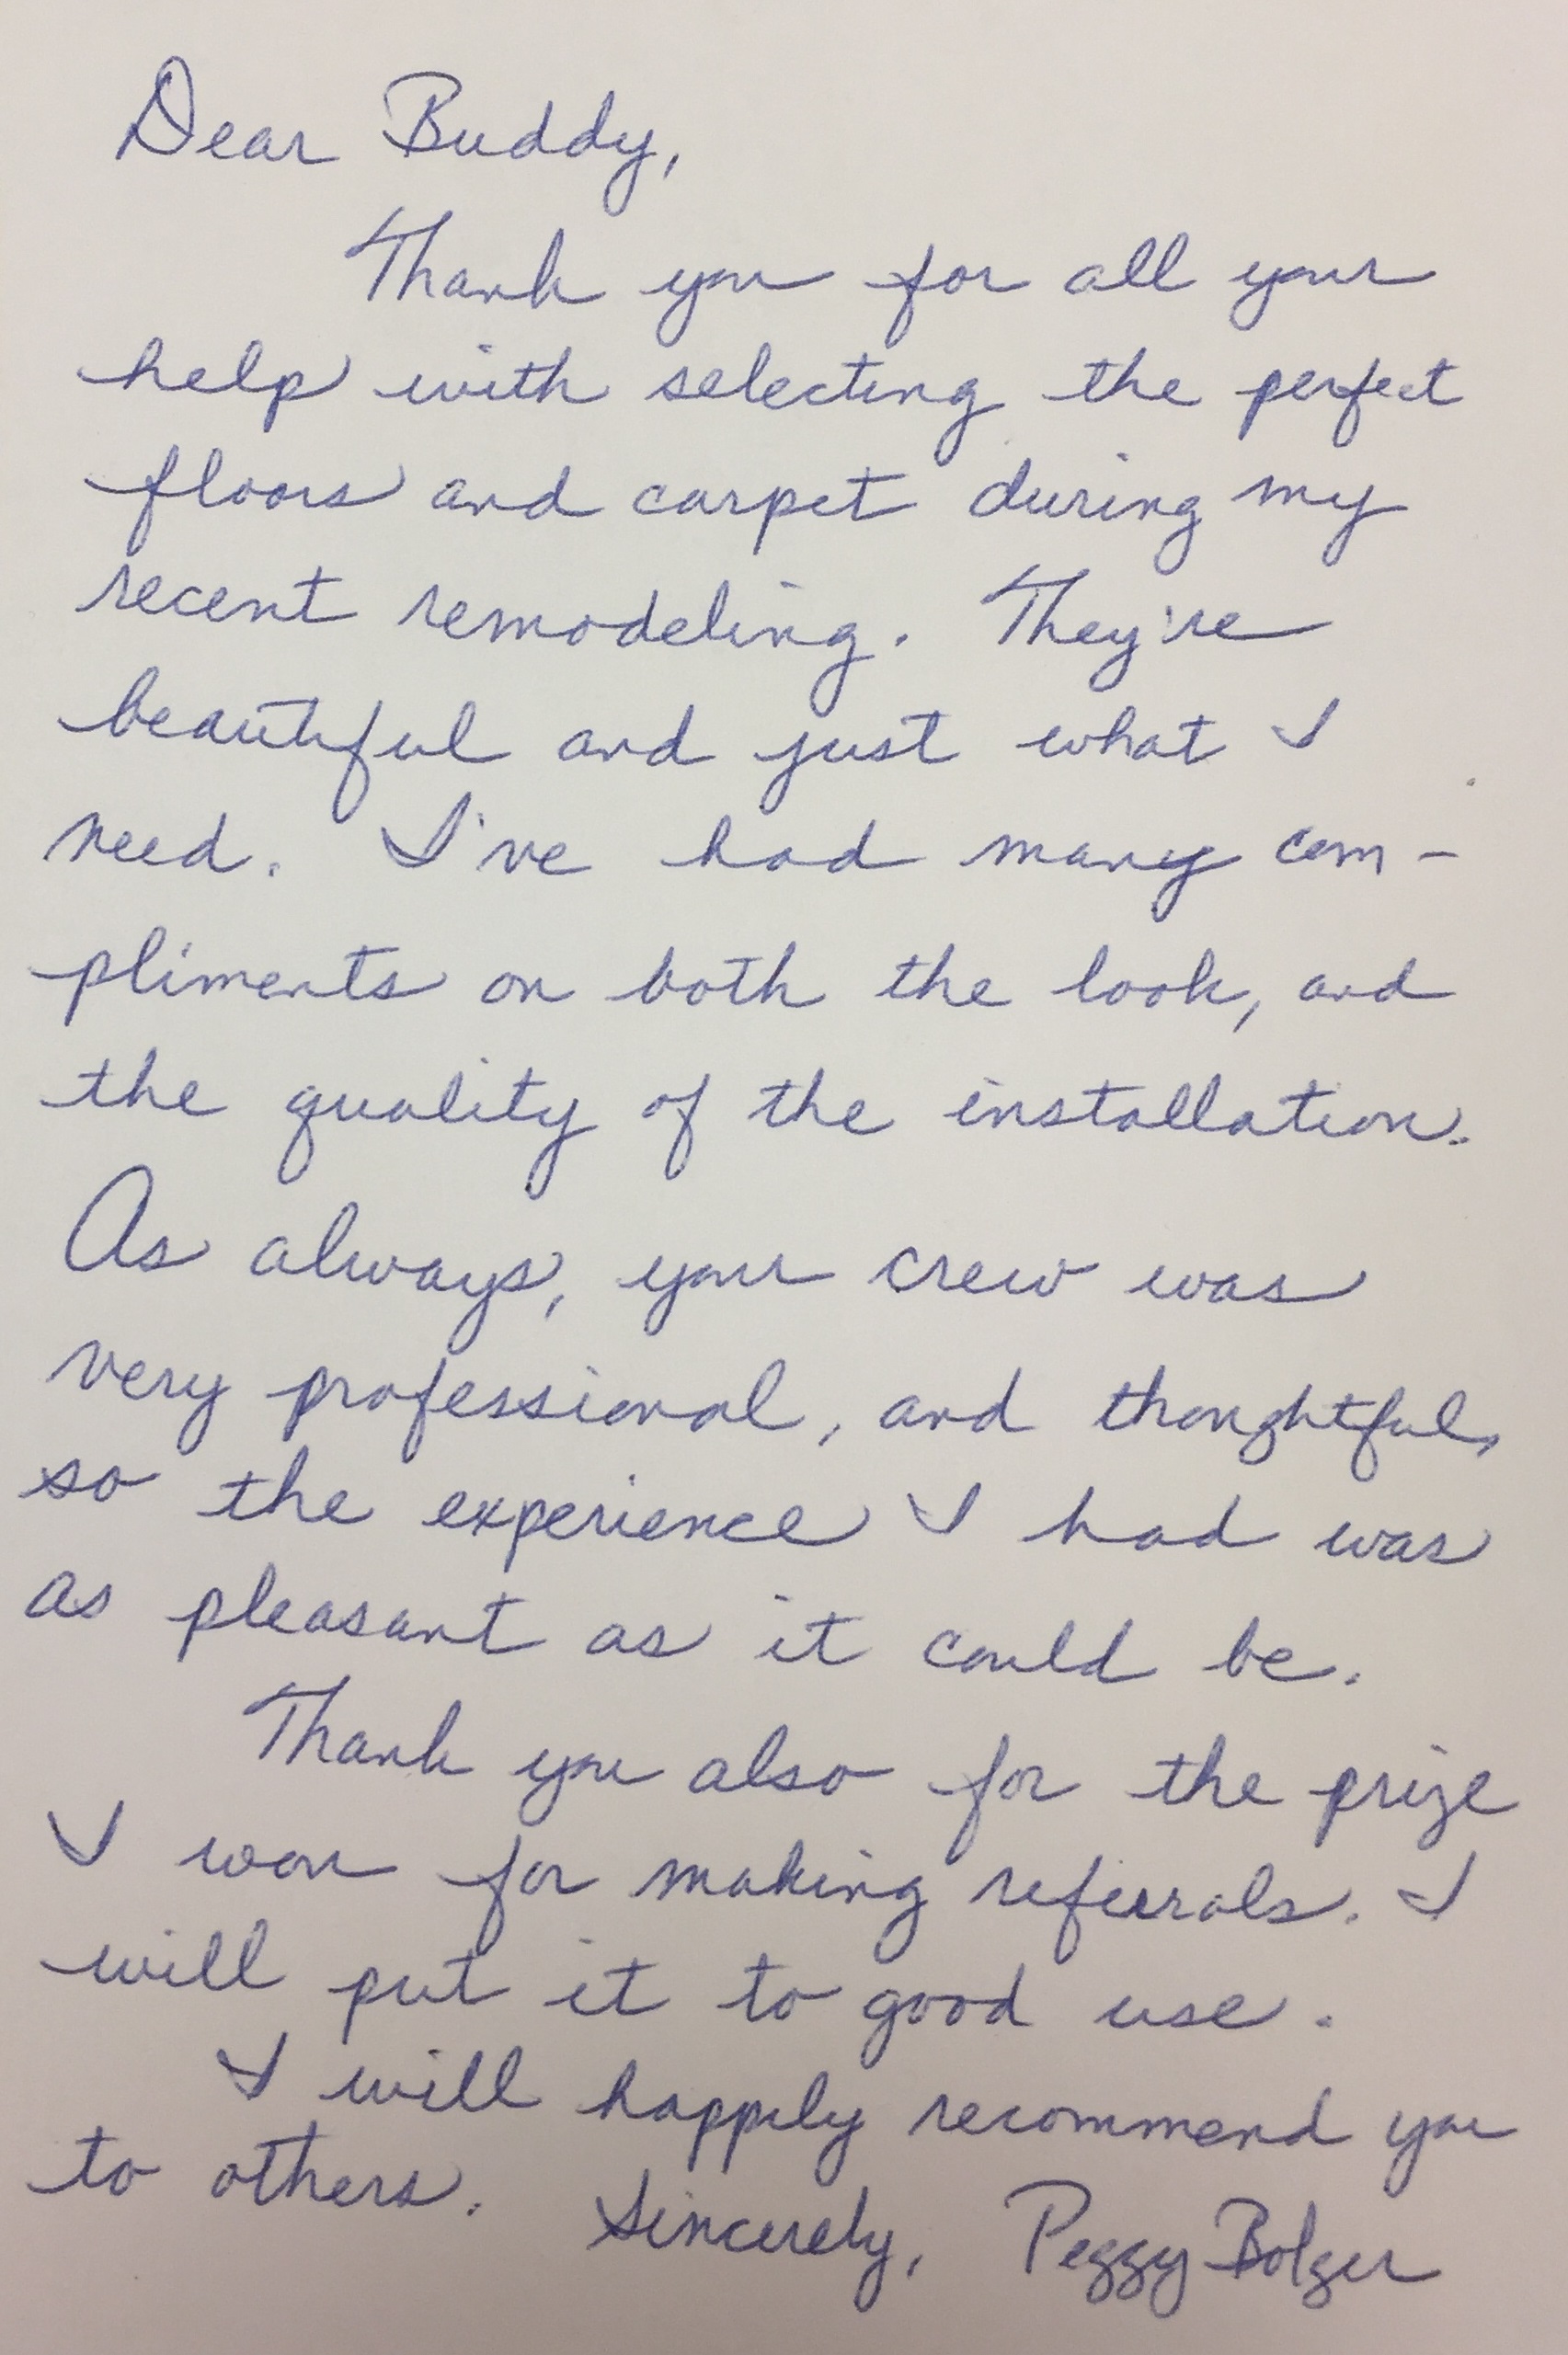 Dear Buddy,
Thank you for all your
help with selecting the perfect
floors and carpet during my
recent remodeling. They're
beautiful and just what I
need. I've had many com-
pliments on both the look, and
the quality of the installation.
As always, your crew was
very professional, and thoughtful,
so the experience I had was
as pleasant as it could be.
Thank you also for the prize
I won for making referrals. I
will put it to good use.
I will happily recommend you
to others. Sincerely, Peggy Bolger